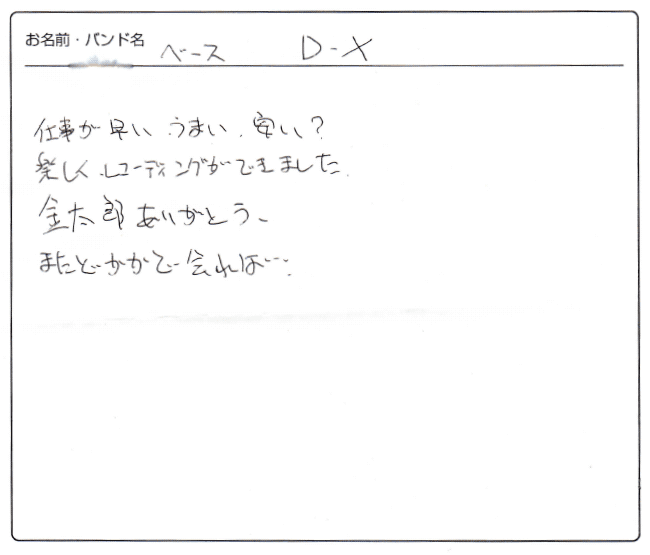 お名前・バンド名 ベース D-X
仕事が早い うまい、安い?
楽しくレコーディングができました。
金太郎ありがとう、
またどかかで会れば…。